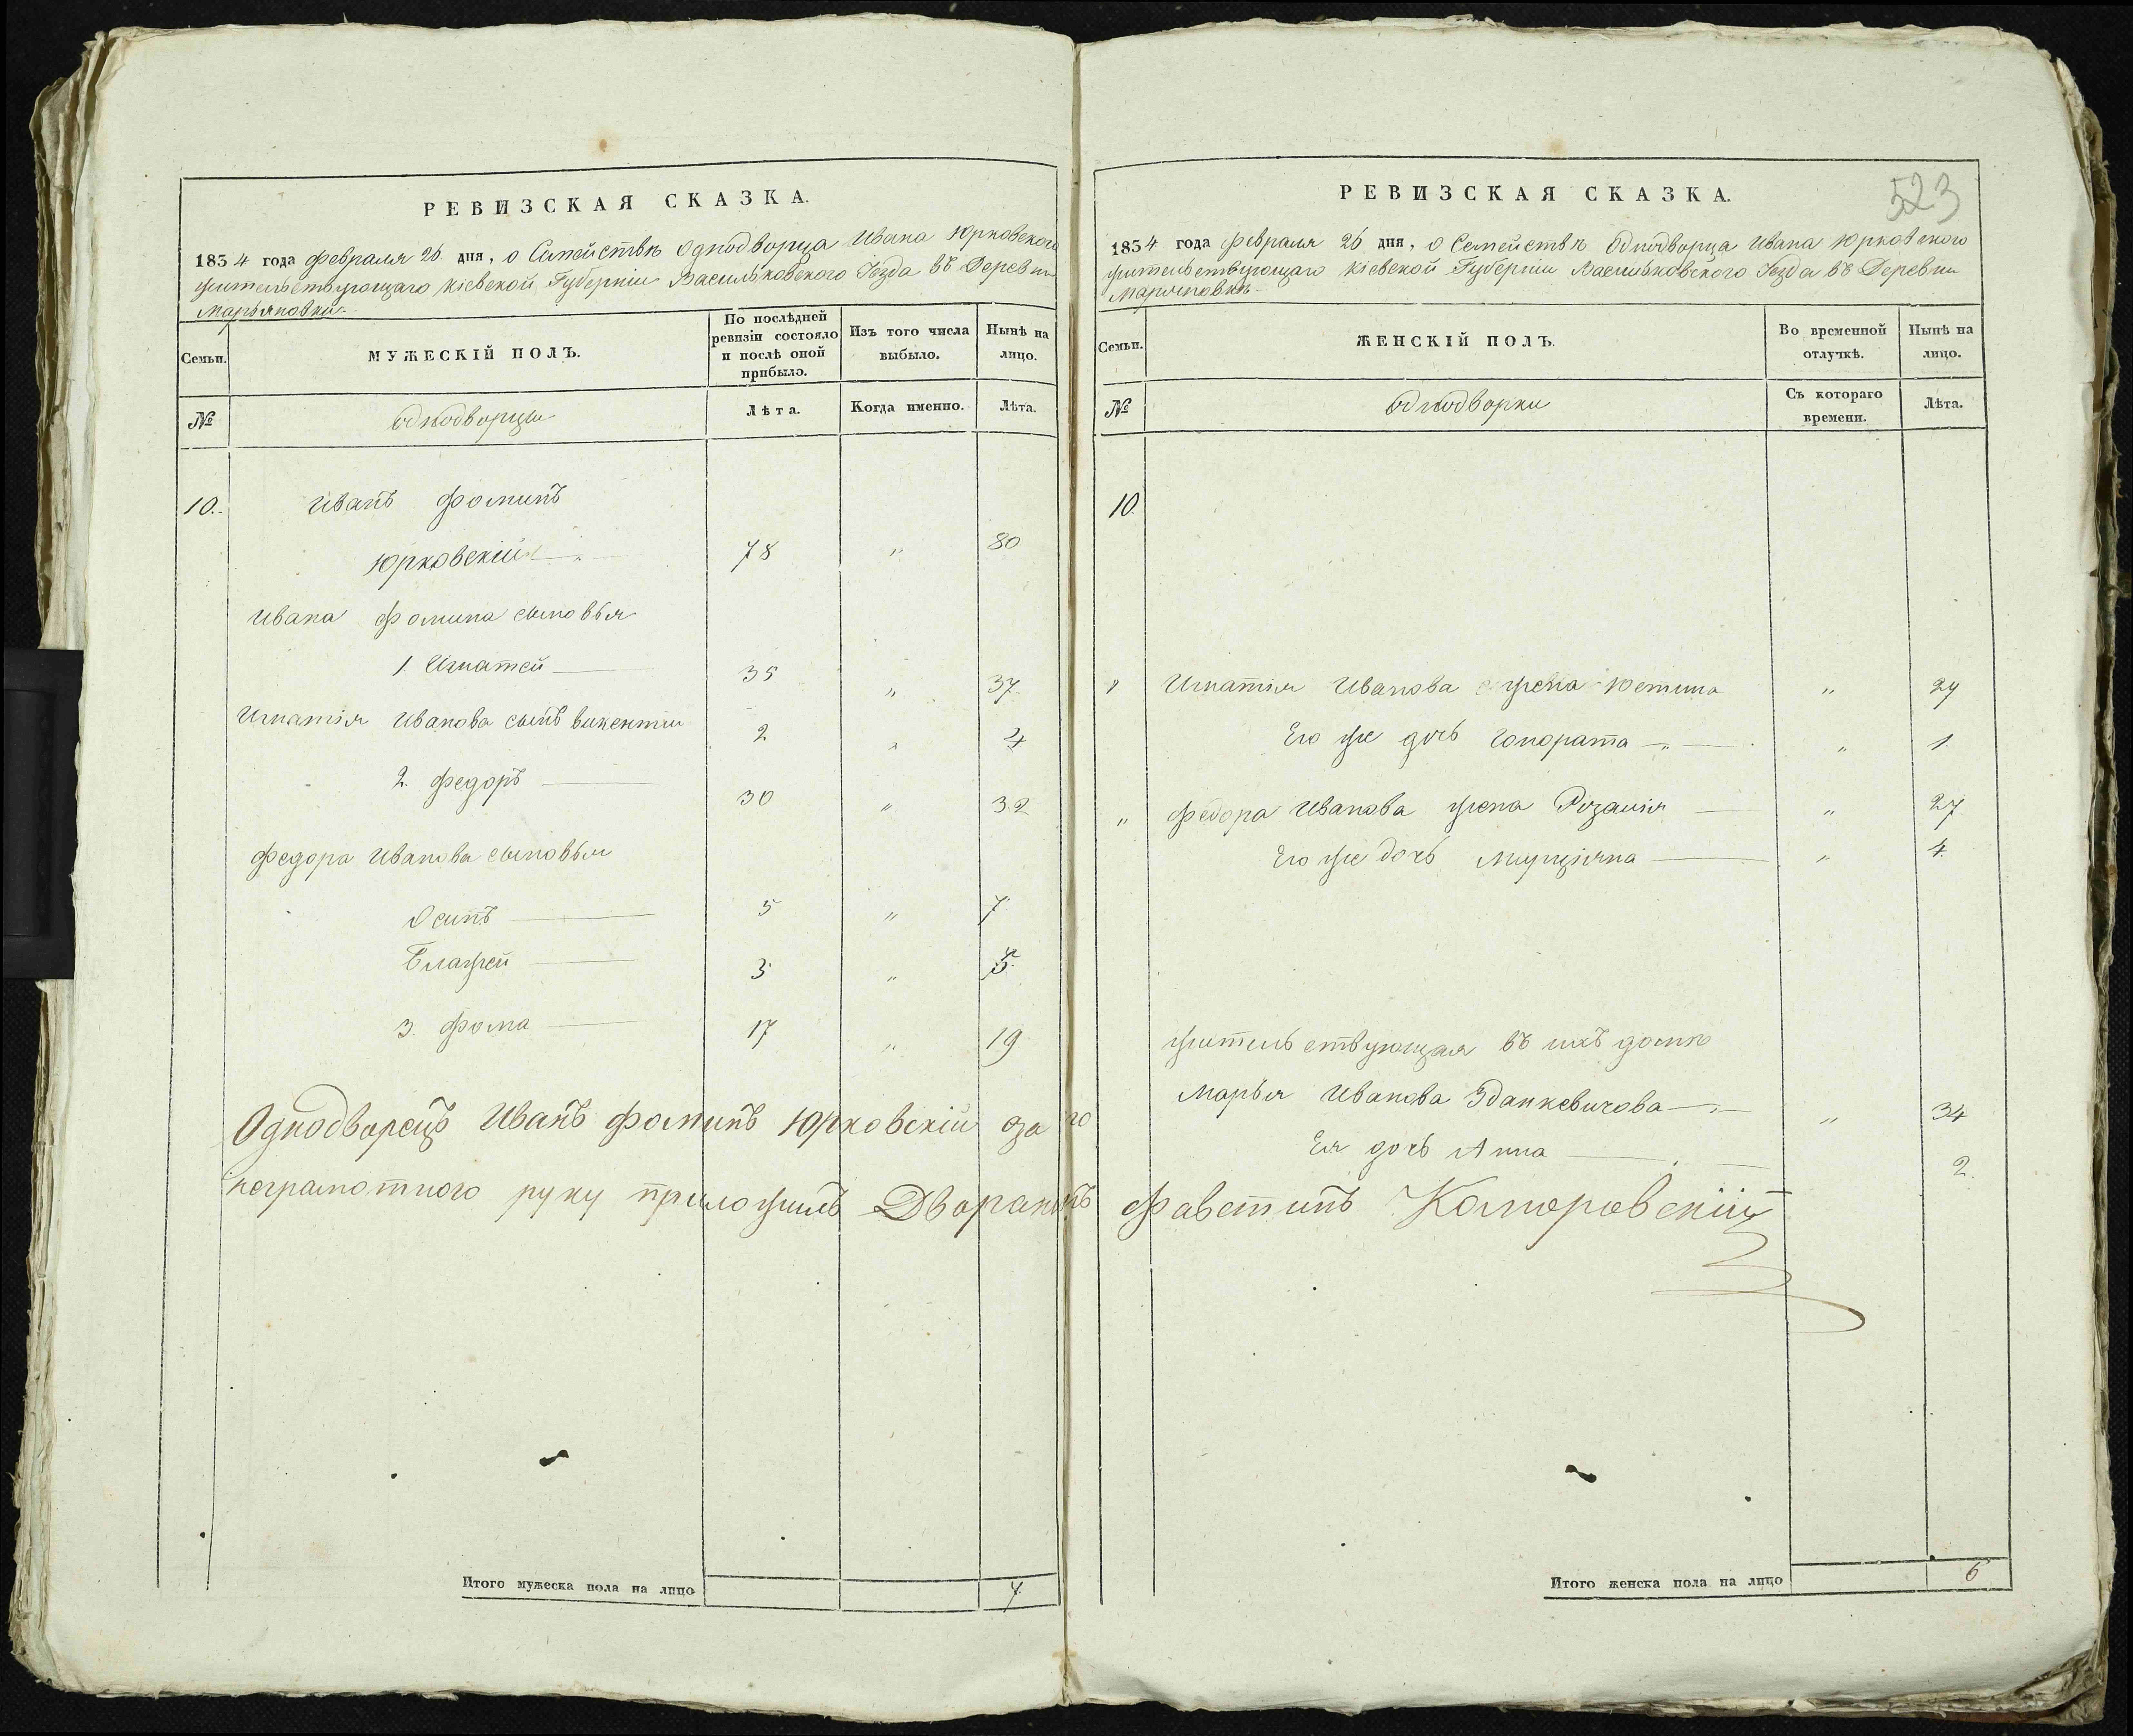 РЕВИЗСКАЯ СКАЗКА.
1834 года февраля 26 дня, о Семействѣ Однодворца Ивана Юрковского
жительствующаго Кіевской Губерніи Васильковского Уезда въ Деревни
Марьяновки.
Семьи.
МУЖЕСКІЙ ПОЛЪ.
По послѣдней ревизіи состояло и послѣ оной прибыло.
Изъ того числа выбыло.
Нынѣ на лицо.
№
Однодворцы
Лѣта.
Когда именно.
Лѣта.
10. Иванъ Фоминъ
Юрковскій 78 " 80
Ивана Фомина сыновья
1 Игнатей 35 " 37
Игнатія Иванова сынъ Викентии 2 " 4
2. Федоръ 30 " 32
Федора Иванова сыновьи
Осипъ 5 " 7
Блажей 3 " 5
3. Фома 17 " 19
Итого мужеска пола на лицо 7.
РЕВИЗСКАЯ СКАЗКА.
523
1834 года февраля 26 дня, о Семействѣ Однодворца Ивана Юрковского
жительствующаго Кіевской Губерніи Васильковского Уезда въ Деревни
Марьяновкѣ
Семьи.
ЖЕНСКІЙ ПОЛЪ.
Во временной отлучкѣ.
Нынѣ на лицо.
№
Однодворки
Съ котораго времени.
Лѣта.
10.
Игнатія Иванова жена Юстина " 29
Его же дочь Гонората " 1
" Федора Иванова жена Розалія " 27
Его же дочь " 4.
жительствующая въ ихъ домѣ
Марья Иванова Зданкевичова " 34
Ея дочь Анна 2.
Однодворецъ Иванъ Фоминъ Юрковскій за его
неграмотного руку приложилъ Дворянинъ Фавстинъ Коморовскій
Итого женска пола на лицо 6